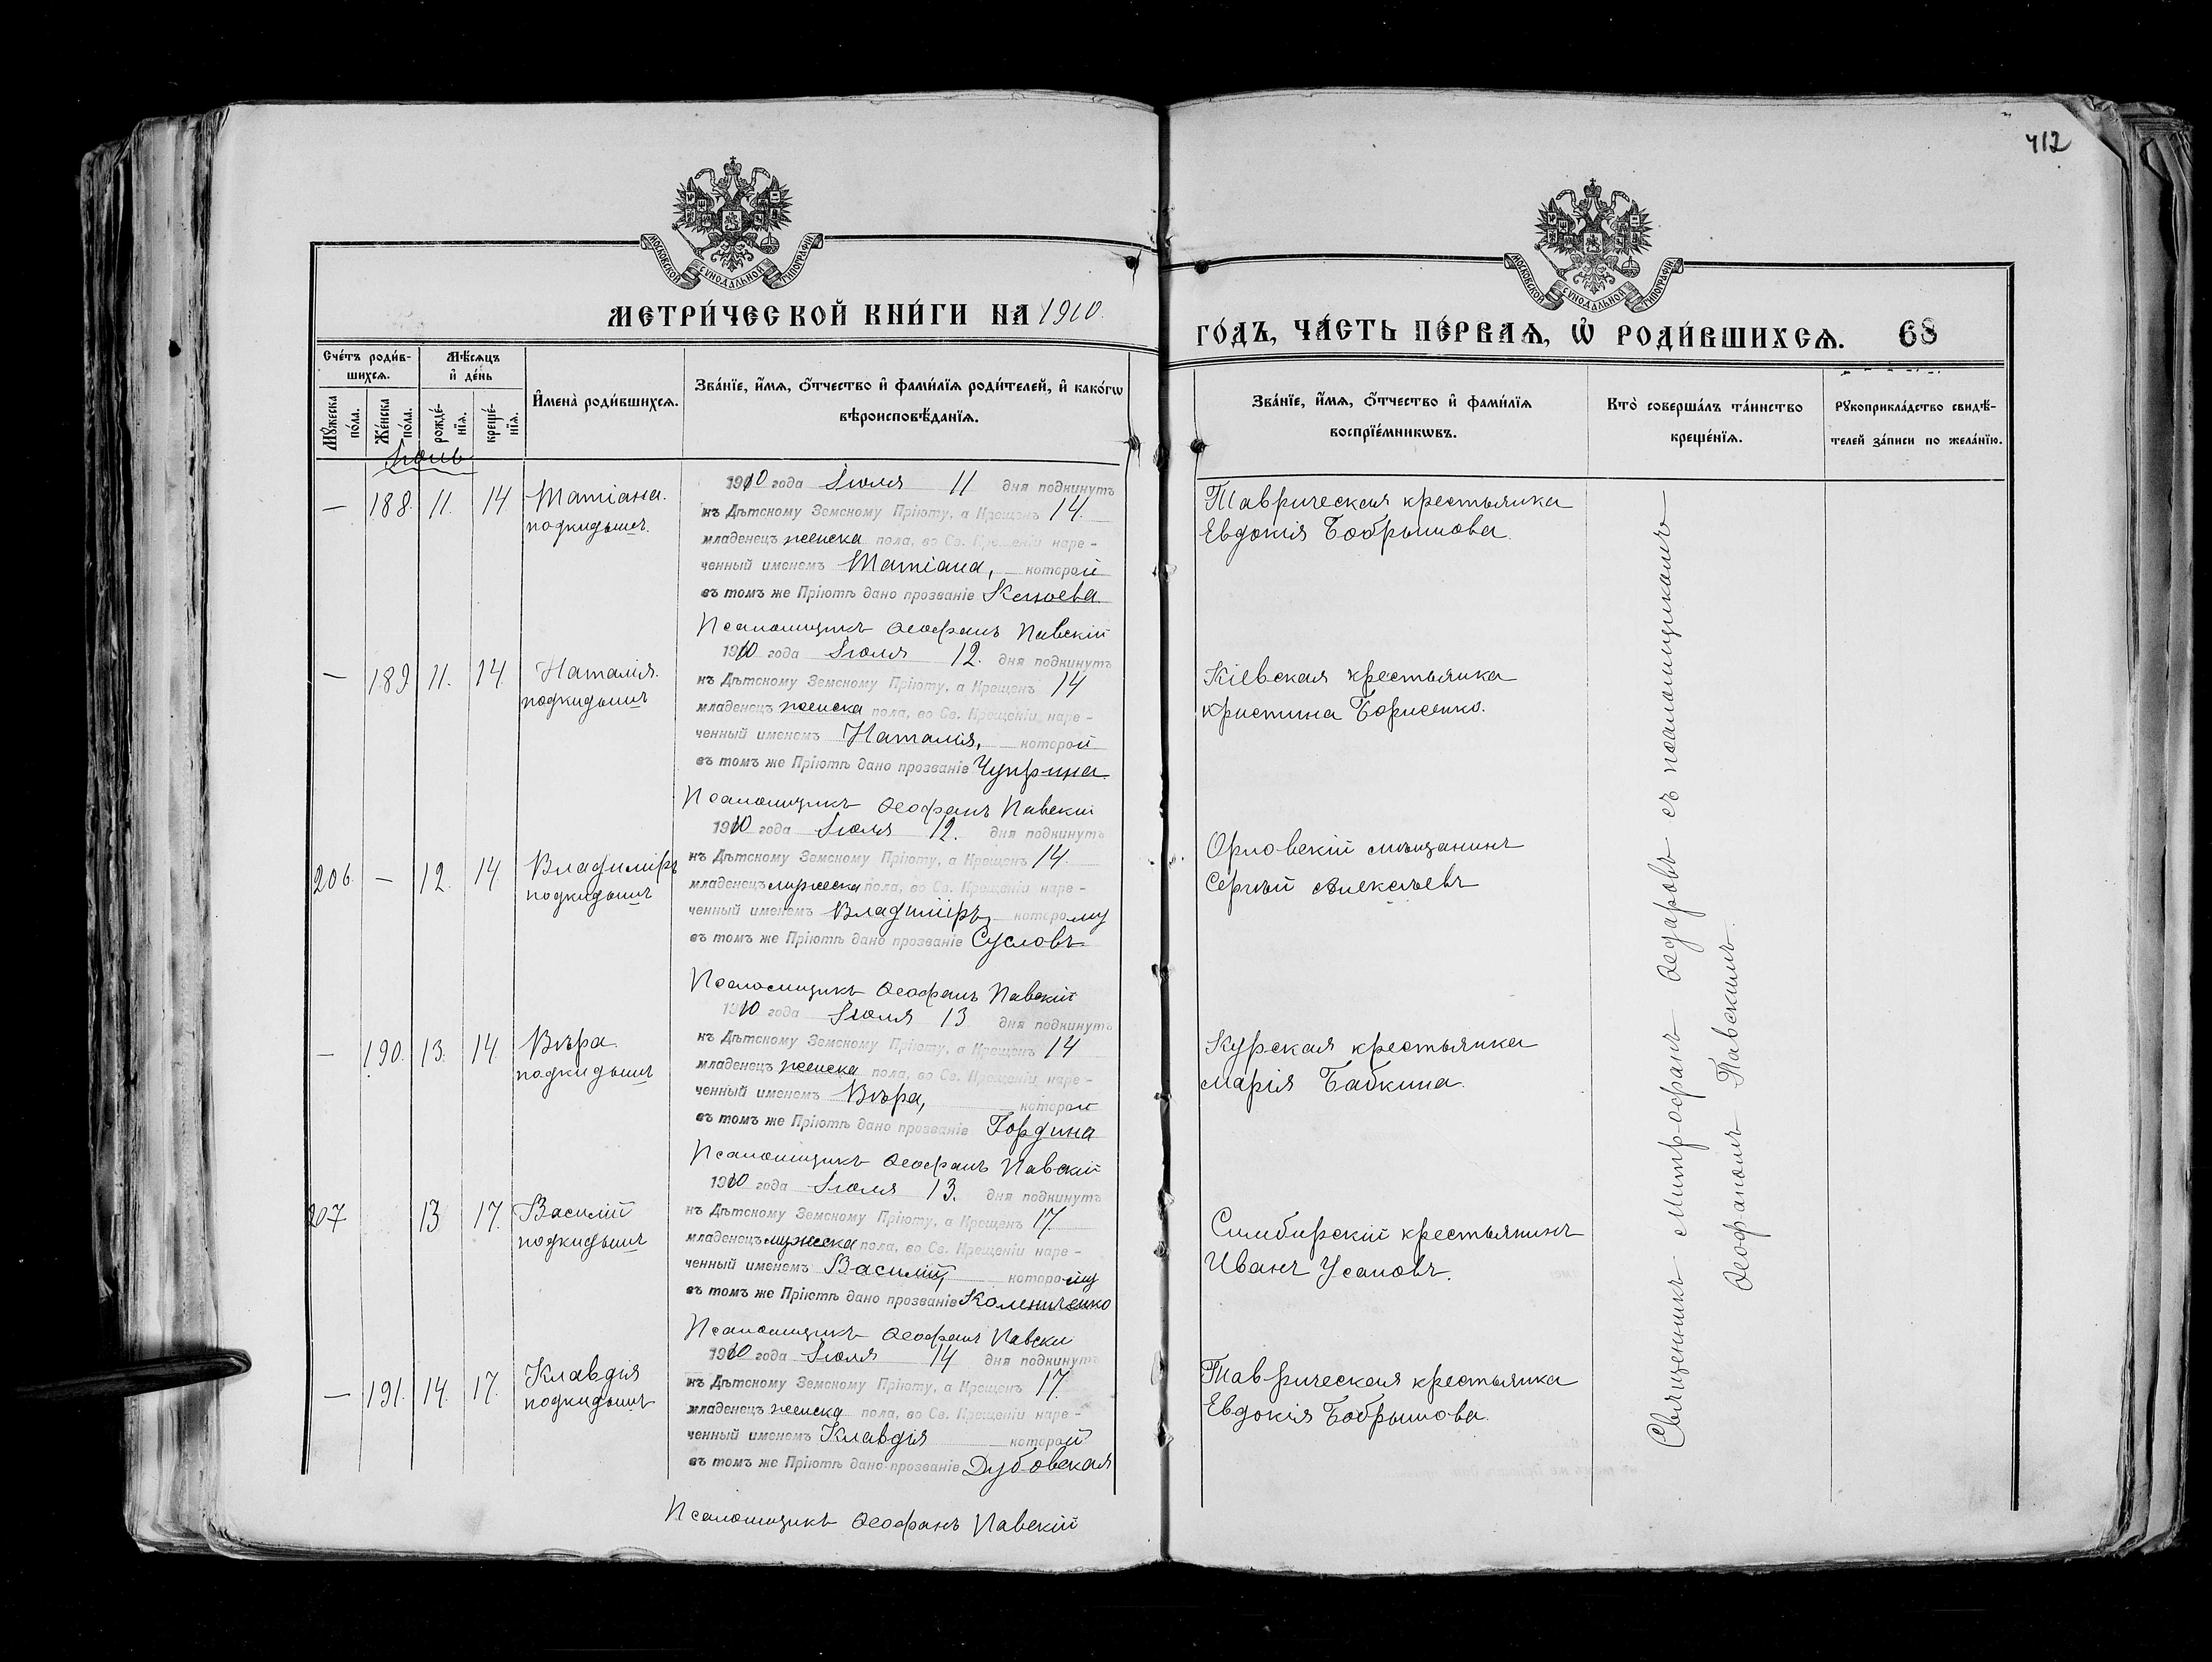 412
МОСКОВСКОЙ СѴНОДАЛЬНОЙ ТИПОГРАФІИ
МОСКОВСКОЙ СѴНОДАЛЬНОЙ ТИПОГРАФІИ
МЕТРИ́ЧЕСКОЙ КНИ́ГИ НА 1910.
ГО́ДЪ, ЧА́СТЬ ПЕ́РВАѦ, Ѡ҆ РОДИ́ВШИХСѦ. 68
Сче́тъ роди́в-
шихсѧ.
Мꙋ́жеска по́ла.
Же́нска по́ла.
Мѣ́сѧцъ
и҆ де́нь
рожде́-
нїѧ.
креще́-
нїѧ.
И҆мена̀ роди́вшихсѧ.
Зва́нїе, и҆́мѧ, ѻ҆́тчество и҆ фами́лїѧ роди́телей, и҆ како́гѡ
вѣроисповѣ́данїѧ.
Зва́нїе, и҆́мѧ, ѻ҆́тчество и҆ фами́лїѧ
воспрїе́мникѡвъ.
Кто̀ соверша́лъ та́инство
креще́нїѧ.
Рꙋкоприкла́дство свидѣ́-
телей за́писи по жела́нїю.
Іюль
— 188. 11. 14 Татіана.
подкидышъ.
1910 года Іюля 11 дня подкинутъ
къ Дѣтскому Земскому Пріюту, а Крещенъ 14.
младенецъ женска пола, во Св. Крещеніи наре-
ченный именемъ Татіана, которой
въ томъ же Пріютѣ дано прозваніе
Псаломщикъ Ѳеофанъ Павскій
Таврическая крестьянка
Евдокія Бобрышова.
— 189 11. 14. Наталія.
подкидышъ
1910 года Іюля 12. дня подкинутъ
къ Дѣтскому Земскому Пріюту, а Крещенъ 14
младенецъ женска пола, во Св. Крещеніи наре-
ченный именемъ Наталія, которой
въ томъ же Пріютѣ дано прозваніе Чуприна.
Псаломщикъ Ѳеофанъ Павскій
Кіевская крестьянка
Кристина Борисенко.
206. — 12. 14. Владиміръ
подкидышъ
1910 года Іюля 12. дня подкинутъ
къ Дѣтскому Земскому Пріюту, а Крещенъ 14.
младенецъ мужеска пола, во Св. Крещеніи наре-
ченный именемъ Владиміръ, которому
въ томъ же Пріютѣ дано прозваніе Сусловъ
Псаломщикъ Ѳеофанъ Павскій
Орловскій мѣщанинъ
Сергѣй Алексѣевъ
— 190. 13. 14 Вѣра.
подкидышъ
1910 года Іюля 13 дня подкинутъ
къ Дѣтскому Земскому Пріюту, а Крещенъ 14
младенецъ женска пола, во Св. Крещеніи наре-
ченный именемъ Вѣра, которой
въ томъ же Пріютѣ дано прозваніе Гордина
Псаломщикъ Ѳеофанъ Павскій
Курская крестьянка
Марія Бабкина.
207 13 17. Василій
подкидышъ
1910 года Іюля 13. дня подкинутъ
къ Дѣтскому Земскому Пріюту, а Крещенъ 17.
младенецъ мужеска пола, во Св. Крещеніи наре-
ченный именемъ Василій, которому
въ томъ же Пріютѣ дано прозваніе Колениченко
Псаломщикъ Ѳеофанъ Павскій
Симбирскій крестьянинъ
Иванъ Усановъ.
— 191. 14. 17. Клавдія
подкидышъ
1910 года Іюля 14 дня подкинутъ
къ Дѣтскому Земскому Пріюту, а Крещенъ 17.
младенецъ женска пола, во Св. Крещеніи наре-
ченный именемъ Клавдія которой
въ томъ же Пріютѣ дано прозваніе Дубовская
Псаломщикъ Ѳеофанъ Павскій
Таврическая крестьянка
Евдокія Бобрышова.
Священникъ Митрофанъ Ѳедаровъ съ псаломщикомъ
Ѳеофаномъ Павскимъ.